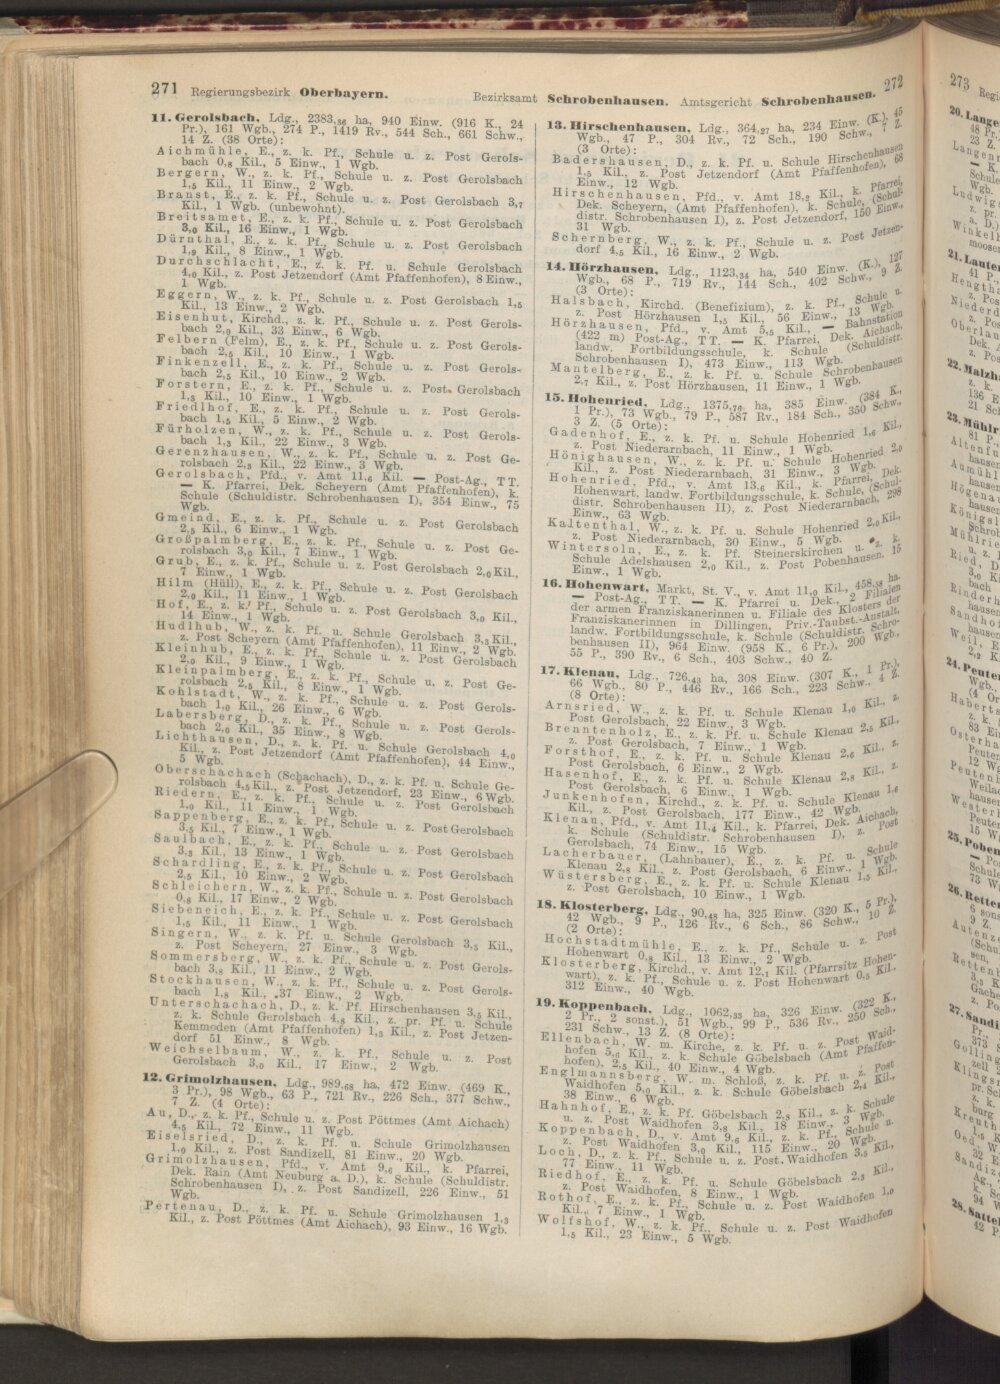 271 Regierungsbezirk Oberbayern.
Bezirksamt Schrobenhausen. Amtsgericht Schrobenhausen. 272
11. Gerolsbach, Ldg., 2383,36 ha, 940 Einw. (916 K., 24
Pr.), 161 Wgb., 274 P., 1419 Rv., 544 Sch., 661 Schw.,
14 Z. (38 Orte):
Aichmühle, E., z. k. Pf., Schule u. z. Post Gerols-
bach 0,8 Kil., 5 Einw., 1 Wgb.
Bergern, W., z. k. Pf., Schule u. z. Post Gerolsbach
1,5 Kil., 11 Einw., 2 Wgb.
Branst, E., z. k. Pf., Schule u. z. Post Gerolsbach 3,7
Kil., 1 Wgb. (unbewohnt).
Breitsamet, E., z. k. Pf., Schule u. z. Post Gerolsbach
3,0 Kil., 16 Einw., 1 Wgb.
Dürnthal, E., z. k. Pf., Schule u. z. Post Gerolsbach
1,9 Kil., 8 Einw., 1 Wgb.
Durchschlacht, E., z. k. Pf. u. Schule Gerolsbach
4,0 Kil., z. Post Jetzendorf (Amt Pfaffenhofen), 8 Einw.,
1 Wgb.
Eggern, W., z. k. Pf., Schule u. z. Post Gerolsbach 1,5
Kil., 13 Einw., 2 Wgb.
Eisenhut, Kirchd., z. k. Pf., Schule u. z. Post Gerols-
bach 2,0 Kil., 33 Einw., 6 Wgb.
Felbern (Felm), E., z. k. Pf., Schule u. z. Post Gerols-
bach 2,5 Kil., 10 Einw., 1 Wgb.
Finkenzell, E., z. k. Pf., Schule u. z. Post Gerols-
bach 2,5 Kil., 10 Einw., 2 Wgb.
Forstern, E., z. k. Pf., Schule u. z. Post. Gerolsbach
1,3 Kil., 10 Einw., 1 Wgb.
Friedlhof, E., z. k. Pf., Schule u. z. Post Gerols-
bach 1,5 Kil., 5 Einw., 2 Wgb.
Fürholzen, W., z. k. Pf., Schule u. z. Post Gerols-
bach 1,3 Kil., 22 Einw., 3 Wgb.
Gerenzhausen, W., z. k. Pf., Schule u. z. Post Ge-
rolsbach 2,3 Kil., 22 Einw., 3 Wgb.
Gerolsbach, Pfd., v. Amt 11,6 Kil. — Post-Ag., TT.
— K. Pfarrei, Dek. Scheyern (Amt Pfaffenhofen), k.
Schule (Schuldistr. Schrobenhausen I), 354 Einw., 75
Wgb.
Gmeind, E., z. k. Pf., Schule u. z. Post Gerolsbach
2,5 Kil., 6 Einw., 1 Wgb.
Großpalmberg, E., z. k. Pf., Schule u. z. Post Ge-
rolsbach 3,0 Kil., 7 Einw., 1 Wgb.
Grub, E., z. k. Pf., Schule u. z. Post Gerolsbach 2,0 Kil.,
7 Einw., 1 Wgb.
Hilm (Hüll), E., z. k. Pf., Schule u. z. Post Gerolsbach
2,0 Kil., 11 Einw., 1 Wgb.
Hof, E., z. k. Pf., Schule u. z. Post Gerolsbach 3,0 Kil.,
14 Einw., 1 Wgb.
Hudlhub, W., z. k. Pf. u. Schule Gerolsbach 3,3 Kil.,
z. Post Scheyern (Amt Pfaffenhofen), 11 Einw., 2 Wgb.
Kleinhub, E., z. k. Pf., Schule u. z. Post Gerolsbach
2,0 Kil., 9 Einw., 1 Wgb.
Kleinpalmberg, E., z. k. Pf., Schule u. z. Post Ge-
rolsbach 2,5 Kil., 8 Einw., 1 Wgb.
Kohlstadt, W., z. k. Pf., Schule u. z. Post Gerols-
bach 1,0 Kil., 26 Einw., 6 Wgb.
Labersberg, D., z. k. Pf., Schule u. z. Post Gerols-
bach 2,0 Kil., 35 Einw., 8 Wgb.
Lichthausen, D., z. k. Pf. u. Schule Gerolsbach 4,0
Kil., z. Post Jetzendorf (Amt Pfaffenhofen), 44 Einw.,
5 Wgb.
Oberschachach (Schachach), D., z. k. Pf. u. Schule Ge-
rolsbach 4,5 Kil., z. Post Jetzendorf, 23 Einw., 6 Wgb.
Riedern, E., z. k. Pf., Schule u. z. Post Gerolsbach
1,0 Kil., 11 Einw., 1 Wgb.
Sappenberg, E., z. k. Pf., Schule u. z. Post Gerolsbach
3,5 Kil., 7 Einw., 1 Wgb.
Saulbach, E., z. k. Pf., Schule u. z. Post Gerolsbach
3,3 Kil., 13 Einw., 1 Wgb.
Schardling, E., z. k. Pf., Schule u. z. Post Gerolsbach
2,5 Kil., 10 Einw., 2 Wgb.
Schleichern, W., z. k. Pf., Schule u. z. Post Gerolsbach
0,8 Kil., 17 Einw., 2 Wgb.
Siebeneich, E., z. k. Pf., Schule u. z. Post Gerolsbach
1,5 Kil., 11 Einw., 1 Wgb.
Singern, W., z. k. Pf. u. Schule Gerolsbach 3,5 Kil.,
z. Post Scheyern, 27 Einw., 3 Wgb.
Sommersberg, W., z. k. Pf., Schule u. z. Post Gerols-
bach 3,8 Kil., 11 Einw., 2 Wgb.
Stockhausen, W., z. k. Pf., Schule u. z. Post Gerols-
bach 1,8 Kil., 37 Einw., 2 Wgb.
Unterschachach, D., z. k. Pf. Hirschenhausen 3,5 Kil.,
z. k. Schule Gerolsbach 4,8 Kil., z. pr. Pf. u. Schule
Kemmoden (Amt Pfaffenhofen) 1,5 Kil., z. Post Jetzen-
dorf 51 Einw., 8 Wgb.
Weichselbaum, W., z. k. Pf., Schule u. z. Post
Gerolsbach 3,0 Kil., 17 Einw., 2 Wgb.
12. Grimolzhausen, Ldg., 989,68 ha, 472 Einw. (469 K.,
3 Pr.), 98 Wgb., 63 P., 721 Rv., 226 Sch., 377 Schw.,
7 Z. (4 Orte):
Au, D., z. k. Pf., Schule u. z. Post Pöttmes (Amt Aichach)
4,5 Kil., 72 Einw., 11 Wgb.
Eiselsried, D., z. k. Pf. u. Schule Grimolzhausen
1,0 Kil., z. Post Sandizell, 81 Einw., 20 Wgb.
Grimolzhausen, Pfd., v. Amt 9,6 Kil., k. Pfarrei,
Dek. Rain (Amt Neuburg a. D.), k. Schule (Schuldistr.
Schrobenhausen I), z. Post Sandizell, 226 Einw., 51
Wgb.
Pertenau, D., z. k. Pf. u. Schule Grimolzhausen 1,3
Kil., z. Post Pöttmes (Amt Aichach), 93 Einw., 16 Wgb.
13. Hirschenhausen, Ldg., 364,27 ha, 234 Einw. (K.), 45
Wgb., 47 P., 304 Rv., 72 Sch., 190 Schw., 7 Z.
(3 Orte):
Badershausen, D., z. k. Pf. u. Schule Hirschenhausen
1,5 Kil., z. Post Jetzendorf (Amt Pfaffenhofen), 68
Einw., 12 Wgb.
Hirschenhausen, Pfd., v. Amt 18,2 Kil., k. Pfarrei,
Dek. Scheyern, (Amt Pfaffenhofen), k. Schule, (Schul-
distr. Schrobenhausen I), z. Post Jetzendorf, 150 Einw.,
31 Wgb.
Schernberg, W., z. k. Pf., Schule u. z. Post Jetzen-
dorf 4,5 Kil., 16 Einw., 2 Wgb.
14. Hörzhausen, Ldg., 1123,34 ha, 540 Einw. (K.), 127
Wgb., 68 P., 719 Rv., 144 Sch., 402 Schw., 9 Z.
(3 Orte):
Halsbach, Kirchd. (Benefizium), z. k. Pf., Schule u.
z. Post Hörzhausen 1,5 Kil., 56 Einw., 13 Wgb.
Hörzhausen, Pfd., v. Amt 5,5 Kil., — Bahnstation
(422 m) Post-Ag., TT. — K. Pfarrei, Dek. Aichach,
landw. Fortbildungsschule, k. Schule (Schuldistr.
Schrobenhausen I), 473 Einw., 113 Wgb.
Mantelberg, E., z. k. Pf. u. Schule Schrobenhausen
2,7 Kil., z. Post Hörzhausen, 11 Einw., 1 Wgb.
15. Hohenried, Ldg., 1375,70 ha, 385 Einw. (384 K.,
1 Pr.), 73 Wgb., 79 P., 587 Rv., 184 Sch., 350 Schw.,
3 Z. (5 Orte):
Gadenhof, E., z. k. Pf. u. Schule Hohenried 1,6 Kil.,
z. Post Niederarnbach, 11 Einw., 1 Wgb.
Hönighausen, W., z. k. Pf. u. Schule Hohenried 2,0
Kil., z. Post Niederarnbach, 31 Einw., 3 Wgb.
Hohenried, Pfd., v. Amt 13,6 Kil., k. Pfarrei, Dek.
Hohenwart, landw. Fortbildungsschule, k. Schule, (Schul-
distr. Schrobenhausen II), z. Post Niederarnbach, 298
Einw., 63 Wgb.
Kaltenthal, W., z. k. Pf. u. Schule Hohenried 2,0 Kil.,
z. Post Niederarnbach, 30 Einw., 5 Wgb.
Wintersoln, E., z. k. Pf. Steinerskirchen u. z. k.
Schule Adelshausen 2,0 Kil., z. Post Pobenhausen, 15
Einw., 1 Wgb.
16. Hohenwart, Markt, St. V., v. Amt 11,0 Kil., 458,38 ha.
— Post-Ag., TT. — K. Pfarrei u. Dek., 2 Filialen
der armen Franziskanerinnen u. Filiale des Klosters der
Franziskanerinnen in Dillingen, Priv.-Taubst.-Anstalt,
landw. Fortbildungsschule, k. Schule (Schuldistr. Schro-
benhausen II), 964 Einw. (958 K., 6 Pr.), 200 Wgb.,
55 P., 390 Rv., 6 Sch., 403 Schw., 40 Z.
17. Klenau, Ldg., 726,43 ha, 308 Einw. (307 K., 1 Pr.),
66 Wgb., 80 P., 446 Rv., 166 Sch., 223 Schw., 4 Z.
(8 Orte):
Arnsried, W., z. k. Pf. u. Schule Klenau 1,0 Kil., z.
Post Gerolsbach, 22 Einw., 3 Wgb.
Brenntenholz, E., z. k. Pf. u. Schule Klenau 2,5 Kil.,
z. Post Gerolsbach, 7 Einw., 1 Wgb.
Forsthof, E., z. k. Pf. u. Schule Klenau 2,6 Kil., z.
Post Gerolsbach, 6 Einw., 2 Wgb.
Hasenhof, E., z. k. Pf. u. Schule Klenau 2,8 Kil., z.
Post Gerolsbach, 6 Einw., 1 Wgb.
Junkenhofen, Kirchd., z. k. Pf. u. Schule Klenau 1,6
Kil., z. Post Gerolsbach, 177 Einw., 42 Wgb.
Klenau, Pfd., v. Amt 11,4 Kil., k. Pfarrei, Dek. Aichach,
k. Schule (Schuldistr. Schrobenhausen I), z. Post
Gerolsbach, 74 Einw., 15 Wgb.
Lacherbauer, (Lahnbauer), E., z. k. Pf. u. Schule
Klenau 2,8 Kil., z. Post Gerolsbach, 6 Einw., 1 Wgb.
Wüstersberg, E., z. k. Pf. u. Schule Klenau 1,5 Kil.,
z. Post Gerolsbach, 10 Einw., 1 Wgb.
18. Klosterberg, Ldg., 90,48 ha, 325 Einw. (320 K., 5 Pr.),
42 Wgb., 9 P., 126 Rv., 6 Sch., 86 Schw., 10 Z.
(2 Orte):
Hochstadtmühle, E., z. k. Pf., Schule u. z. Post
Hohenwart 0,8 Kil., 13 Einw., 2 Wgb.
Klosterberg, Kirchd., v. Amt 12,1 Kil. (Pfarrsitz Hohen-
wart), z. k. Pf., Schule u. z. Post Hohenwart 0,5 Kil.,
312 Einw., 40 Wgb.
19. Koppenbach, Ldg., 1062,33 ha, 326 Einw. (322 K.,
2 Pr., 2 sonst.), 51 Wgb., 99 P., 536 Rv., 250 Sch.,
231 Schw., 13 Z. (8 Orte):
Ellenbach, W. m. Kirche, z. k. Pf. u. z. Post Waid-
hofen 5,0 Kil., z. k. Schule Göbelsbach (Amt Pfaffen-
hofen), 2,5 Kil., 40 Einw., 4 Wgb.
Englmannsberg, W. m. Schloß, z. k. Pf. u. z. Post
Waidhofen 5,0 Kil., z. k. Schule Göbelsbach 2,4 Kil.,
38 Einw., 6 Wgb.
Hahnhof, E., z. k. Pf. Göbelsbach 2,8 Kil., z. k. Schule
u. z. Post Waidhofen 3,8 Kil., 18 Einw., 3 Wgb.
Koppenbach, D., v. Amt 9,6 Kil., z. k. Pf., Schule u.
z. Post Waidhofen 3,0 Kil., 115 Einw., 20 Wgb.
Loch, D., z. k. Pf., Schule u. z. Post. Waidhofen 3,5 Kil.,
77 Einw., 11 Wgb.
Riedhof, E., z. k. Pf. u. Schule Göbelsbach 2,3 Kil.,
z. Post Waidhofen, 8 Einw., 1 Wgb.
Rothof, E., z. k. Pf., Schule u. z. Post Waidhofen 1,0
Kil., 7 Einw., 1 Wgb.
Wolfshof, W., z. k. Pf., Schule u. z. Post Waidhofen
1,5 Kil., 23 Einw., 5 Wgb.
273